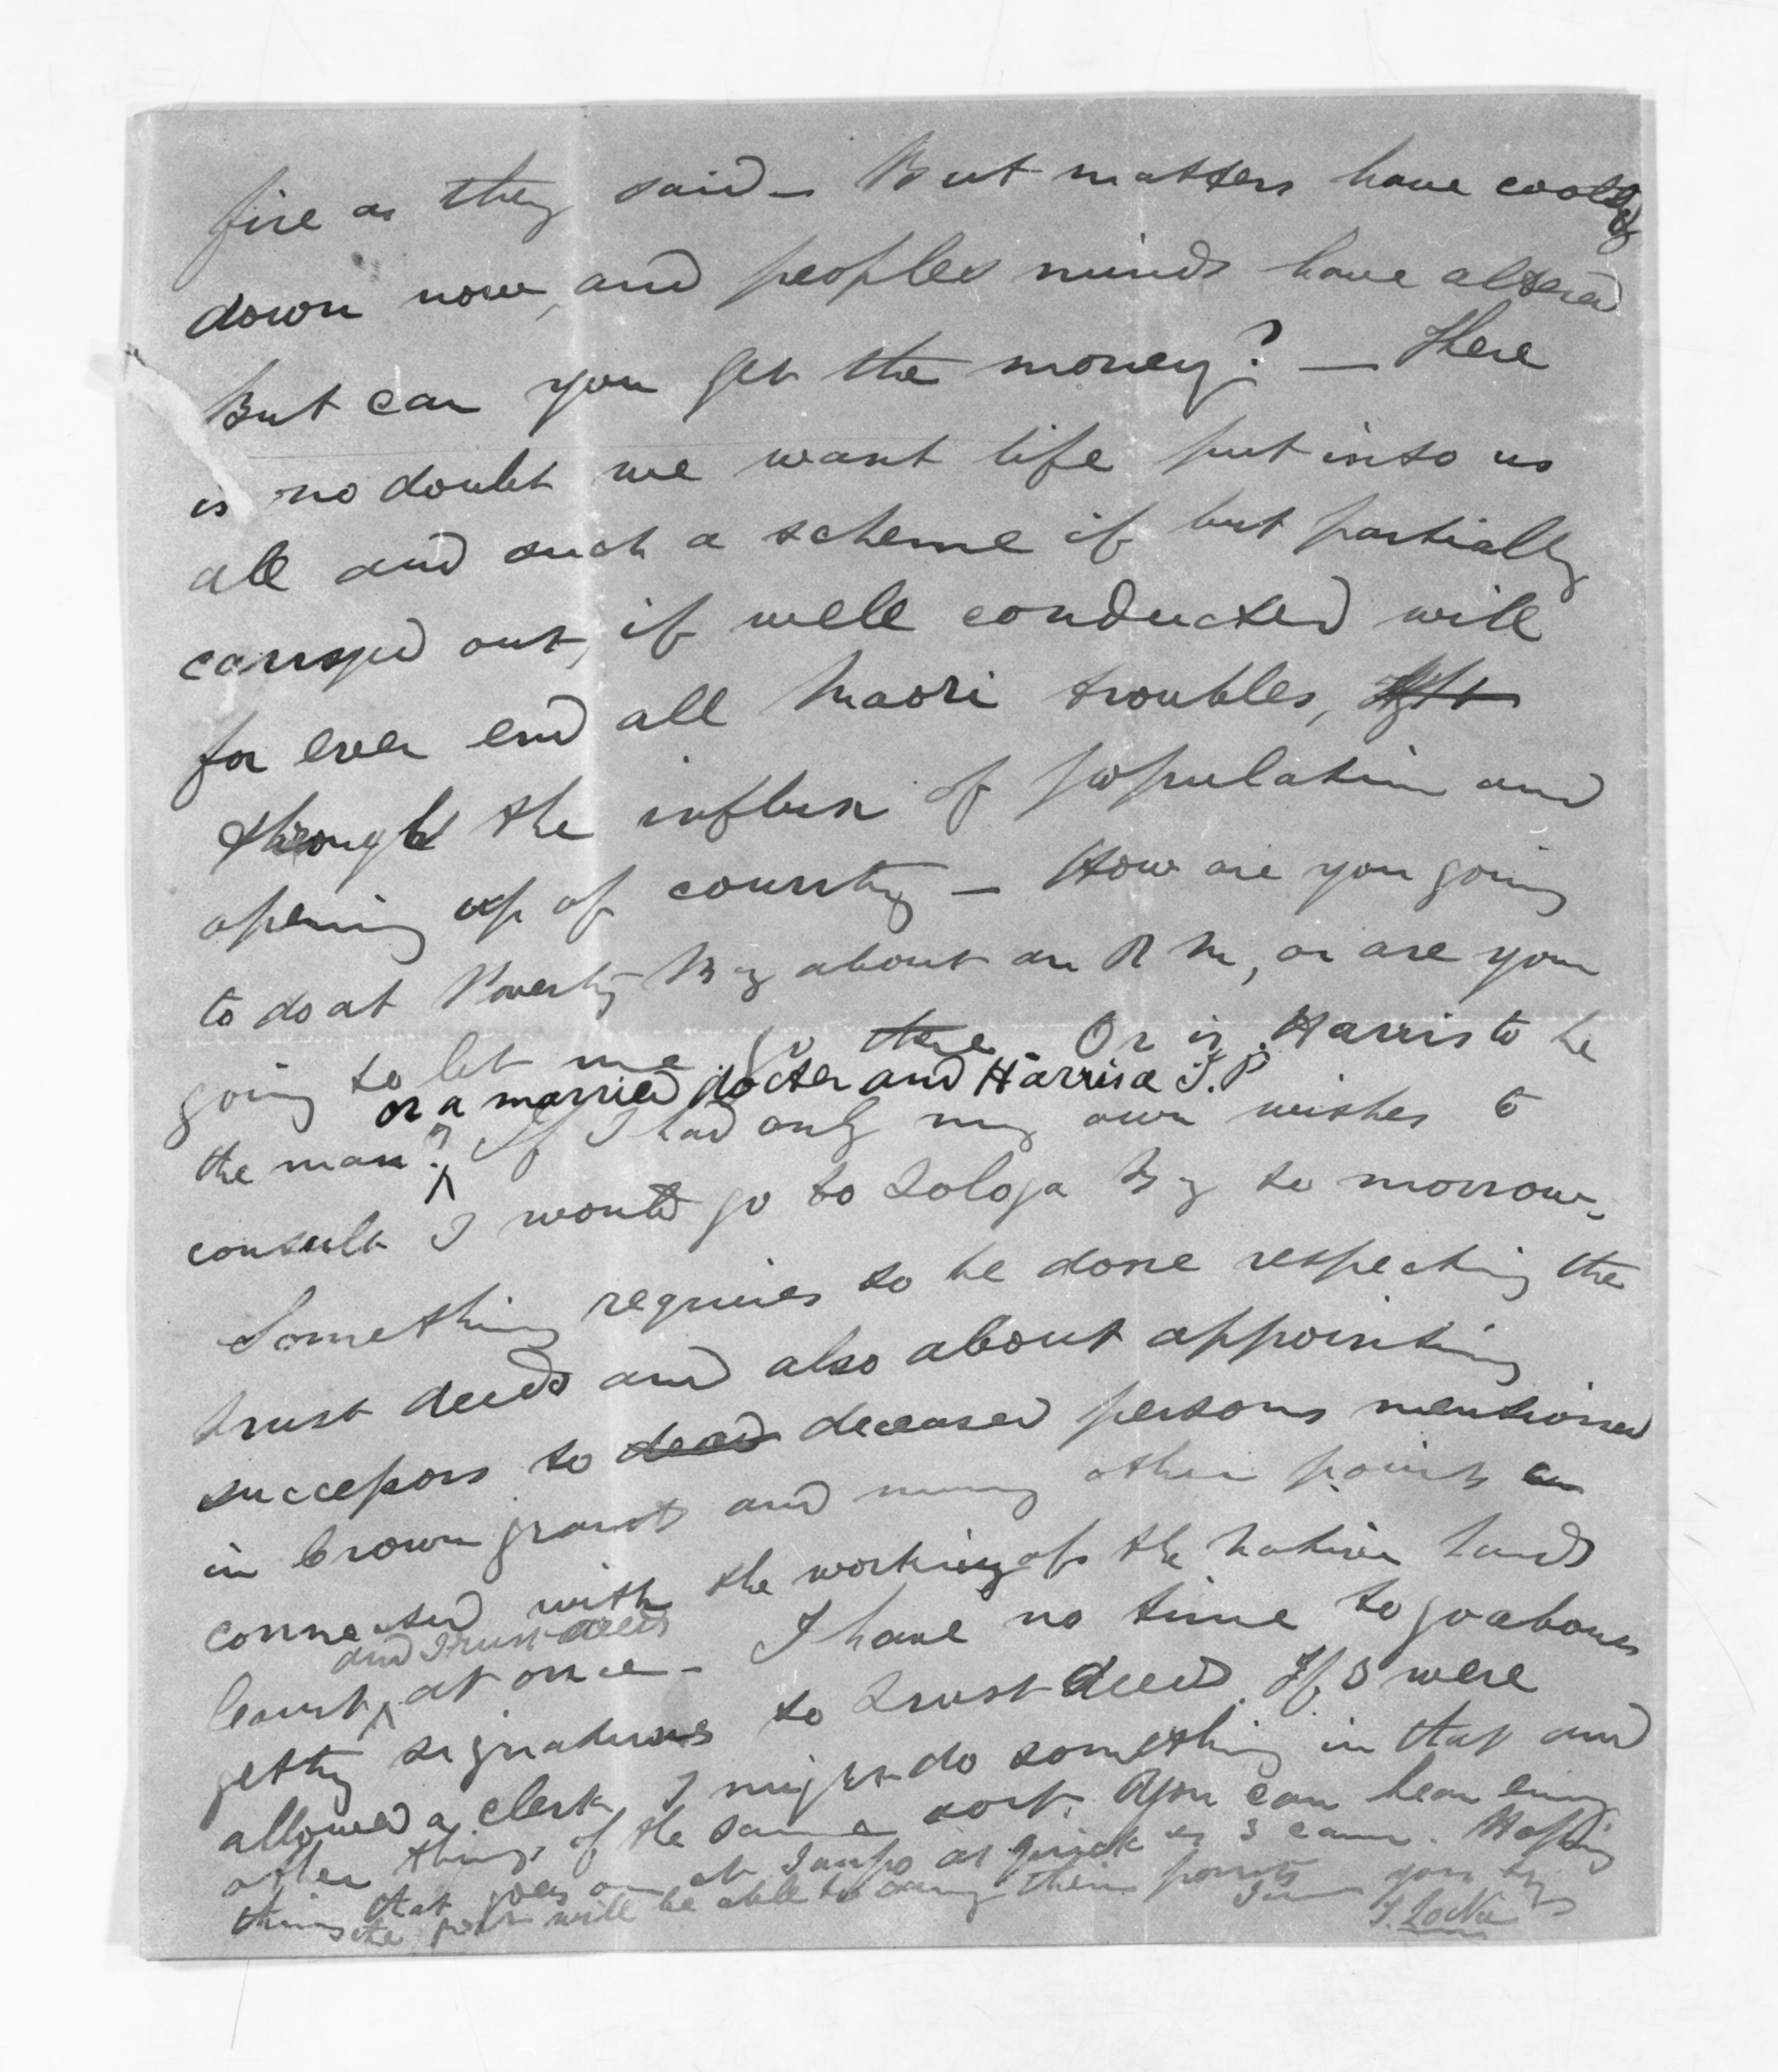 fire as they said – But matters have cooled
down now, and peoples minds have altered
But can you get the money? – There
is no doubt we want life put into us
all and such a scheme if but partially
carryed out, if well conducted will
for ever end all Maori troubles,
through the influx of population and
opening up of country – How are you going
to do at Poverty By about an R M, or are you
going to let me go there Or is Harris to be
or a married docter and Harris a J.P
the man? If I had only my own wishes to
consult I would go to Tologa By to morrow.
Something requires to be done respecting the
trust deeds and also about appointing
successors to dead deceased persons mentioned
in Crown grants and many other points
connected with the working of the Native Lands
and Trust deeds
Court, at once – I have no time to go about
getting signatures to Trust deeds. If I were
allowed a clerk I might do something in that and
other things of the same sort. You can hear every
thing that goes on at Taupo as quick as I can. Hoping
the Govt will be able to carry their points I am yours
S. Locke